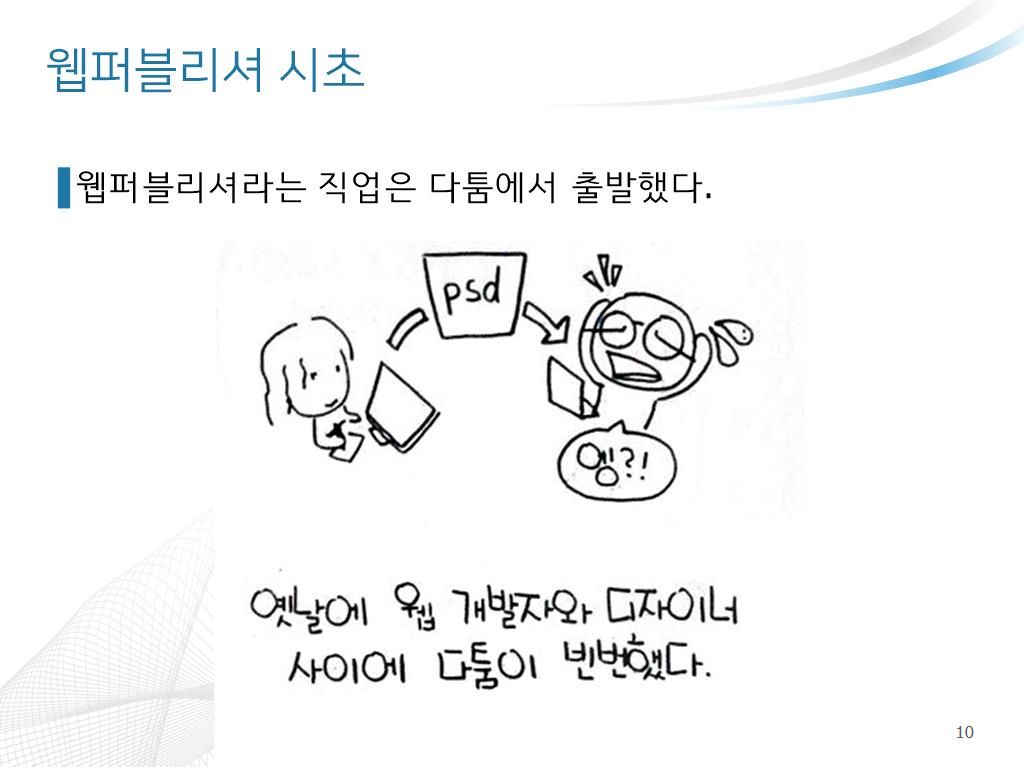 웹퍼블리셔 시초
웹퍼블리셔라는 직업은 다툼에서 출발했다.
psd
엥?!
옛날에 웹 개발자와 디자이너
사이에 다툼이 빈번했다.
10